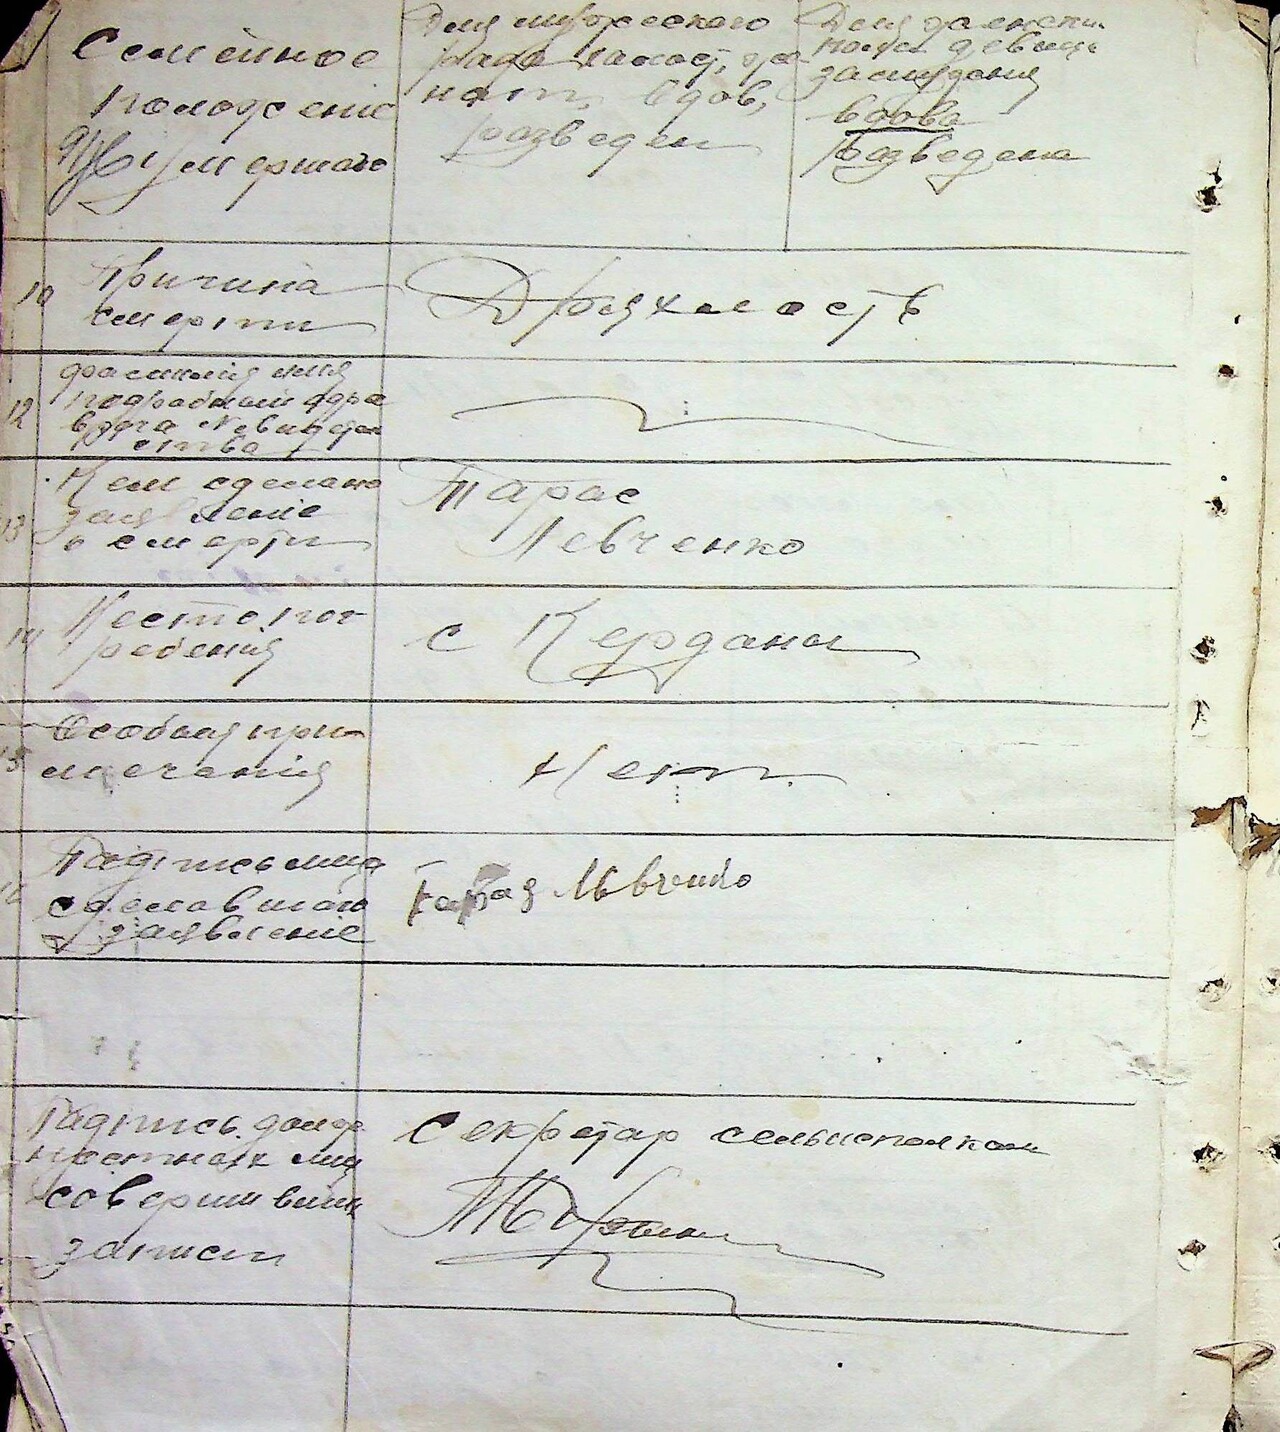 Семейное
положение
умершаго
Для мужсского
рада холост, же
нат, вдов,
разведен
Для женски.
пола девица
замужняя
вдова
Разведена
10 Причина
смерти
Дряхлость
12 фамилия имя
подробный адре
врача № свидетел
ства
13 Кем сделано
заявление
о смерти
Тарас
Левченко
14 Место пог
ребения
с Керданы
15 Особыя при-
мечания
Нет.
16 Падпись лица
сделавшаго
заявление
Тарас Левченко
Падпись долж
ностных лиц
совершивших
записи
Секретар сельисполкома